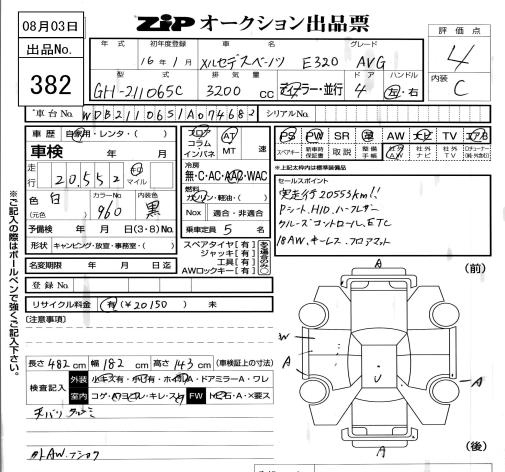 08月03日
ZIP オークション出品票
出品No.
382
評価点
4
内装
C
年式 初年度登録 車名 グレード
16年1月 メルセデスベンツ E320 AVG
型式 排気量 ドア ハンドル
GH-211065C 3200 cc ディーラー・並行 4 左・右
車台No. WDB2110651A074682 シリアルNo.
車歴 自家用・レンタ・( )
車検 年 月
走行 20,552 km マイル
色 白 カラーNo. 960 内装色 黒
(元色)
予備検 年 月 日(3・8)No.
形状 キャンピング・放宣・事務室・( )
名変期限 年 月 日迄
登録No.
リサイクル料金 有(¥20150) 未
(注意事項)
フロア
コラム
インパネ
AT
MT 速
冷房
無・C・AC・AAC・WAC
燃料
ガソリン・軽油・( )
Nox 適合・非適合
乗車定員 5 名
スペアタイヤ[有]
ジャッキ[有]
工具[有]
AWロックキー[有]
PS PW SR 革 AW ナビ TV エアB
スペアキー 新車時保証書 取説 整備手帳 社外AW 社外ナビ 社外TV
※上記太枠内は標準装備品
セールスポイント
実走行20553km!!
Pシート、HID、ハーフレザー
クルーズコントロール、ETC
18AW、キーレス、フロアマット
※ご記入の際はボールペンで強くご記入下さい。
長さ 482cm 幅 182cm 高さ 143cm (車検証上の寸法)
検査記入
外装 小キズ有・小凹有・ホイルA・ドアミラーA・ワレ
室内 コゲ・A・ヨゴレ・キレ・スレ FW トビ石・A・×要ス
外AW、
(前)
A
W
A
U
A
A
(後)